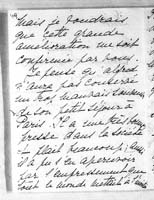 Mais je voudrais
que cette grande
amélioration me soit
conférée par vous.
Je pense qu'Alfred
n'aura pas
un trop mauvais souvenir
de son petit séjour à
Paris. Il a une très bonne
dans la société
plait beaucoup, and
il a pu s'en apercevoir
par l'empressement que
tout le monde mettait à